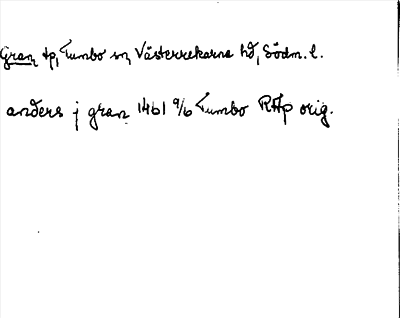 Gran tp, Tumbo sn, Västerrekarne hd, Södm. l.
anders j gran 1461 9/6 Tumbo RAp orig.